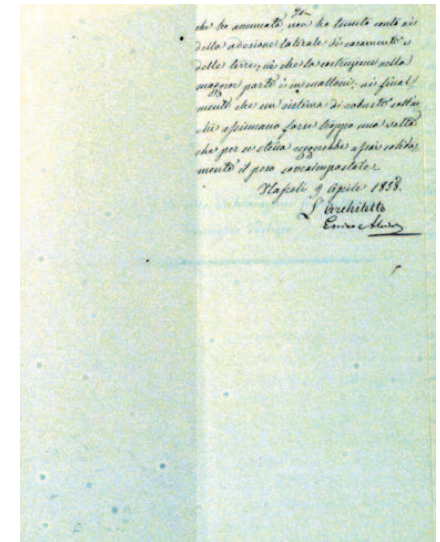 che ho accennato non ho tenuto conto nè
della adesione laterale di cavamento e
delle terre, nè che la costruzione nella
maggior parte è in mattoni, nè final
mente che un sistema di robuste
forse troppo una volta
che per se stessa reggerebbe assai solida
mente il peso sovraimpostate.
Napoli 9 Aprile 1858.
L'Architetto
Errico Alvino